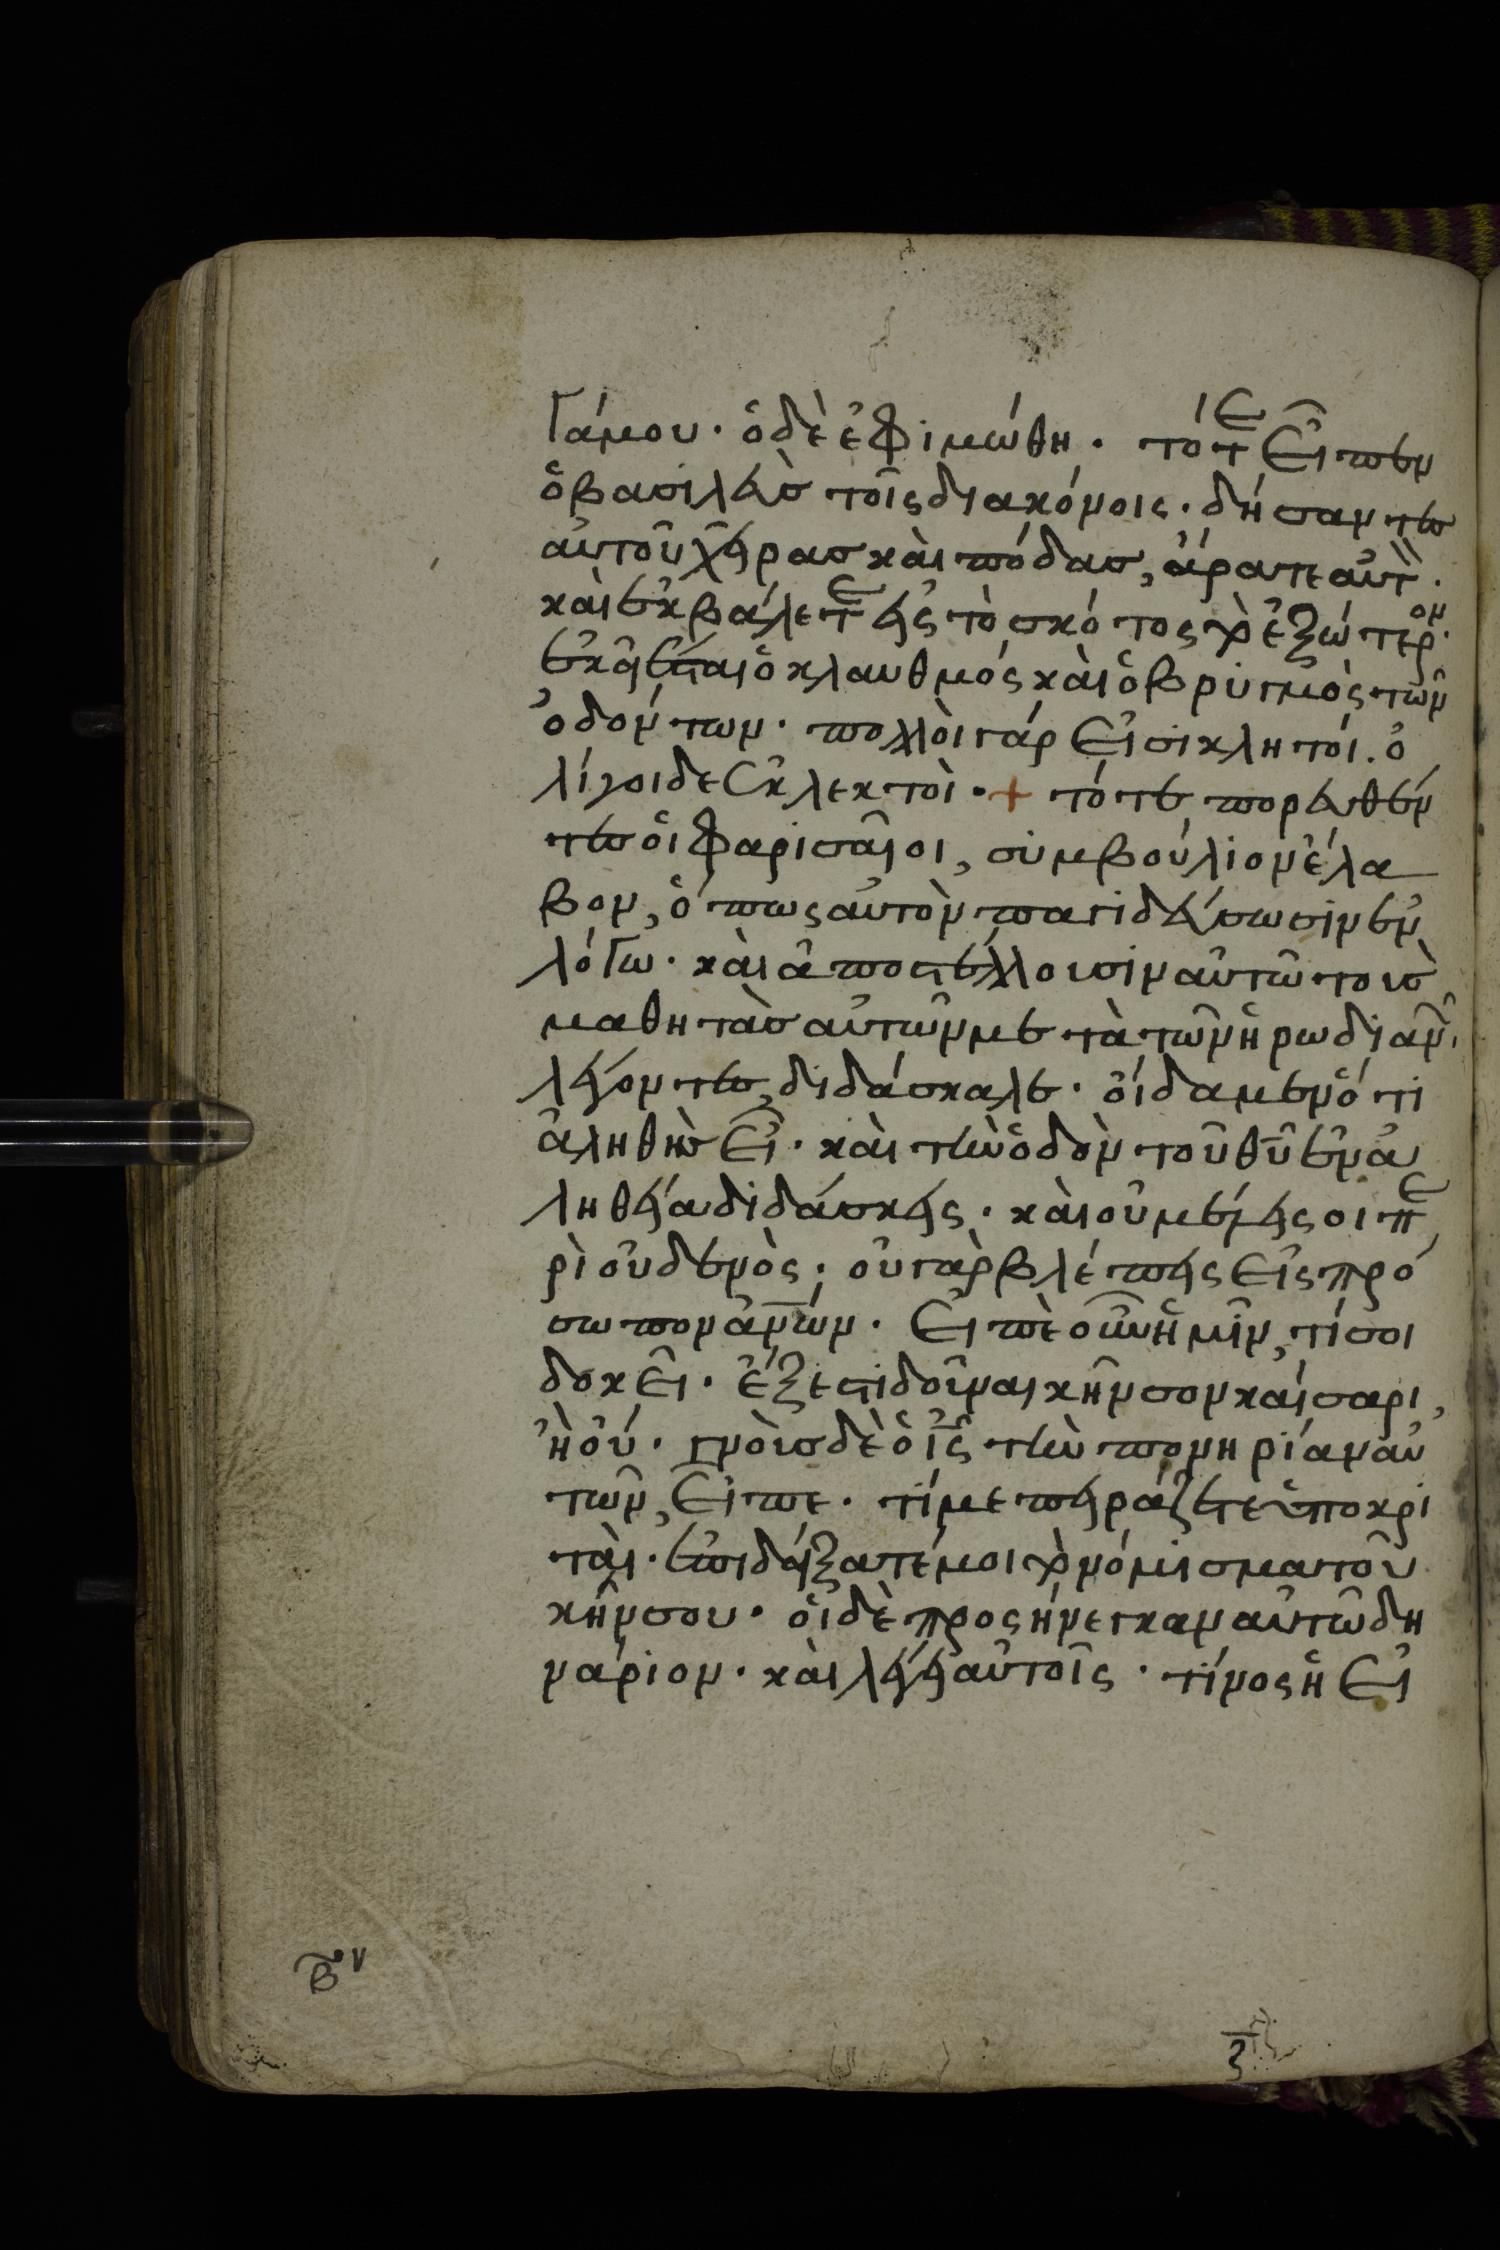 γάμου· ὁ δὲ ἐφιμώθη· τότε εἶπεν
ὁ βασιλεὺσ τοῖς διακόνοις· δήσαντεσ
αὐτοῦ χεῖρασ καὶ πόδασ, ἄρατε αὐτὸν·
καὶ ἐκβάλετε εἰς τὸ σκότος τὸ ἐξώτερον·
ἐκεῖ ἔσται ὁ κλαυθμός καὶ ὁ βρυγμὸς τῶν
ὀδόντων· πολλοὶ γάρ εἰσι κλητοί. ὀ
λίγοι δε ἐκλεκτοὶ·+ τότε πορευθέν
τεσ οἱ φαρισαῖοι, συμβούλιον ἔλα
βον, ὅπως αὐτὸν παγιδεύσωσιν ἐν
λόγω· καὶ ἀποστέλλουσιν αὐτῶ τοὺσ
μαθητὰσ αὐτῶν μετὰ τῶν ἡρωδιανῶν·
λέγοντεσ, διδάσκαλε· οἴδαμεν ὅτι
ἀληθὴσ εἶ· καὶ τὴν ὁδὸν τοῦ θῦ ἐν ἀ
ληθεία διδάσκεις· καὶ οὐ μέλει σοι πε
ρὶ οὐδενὸς· οὐ γὰρ βλέπεις εἰς πρό
σωπον ἀν̅ων· εἰπὲ οὖν ἡμῖν, τί σοι
δοκεῖ· ἔξεστι δοῦναι κῆνσον καίσαρι,
ἢ οὔ· γνοὺσ δὲ ὁ ἰς̅ τὴν πονηρίαν αὐ
τῶν, εἶπε· τί με πειράζετε ὑποκρι
ταὶ· ἐπιδείξατέ μοι τὸ νόμισμα τοῦ
κήνσου· οἱ δὲ προσήνεγκαν αὐτῶ δη
νάριον· καὶ λέγει αὐτοῖς· τίνος ἡ εἰ